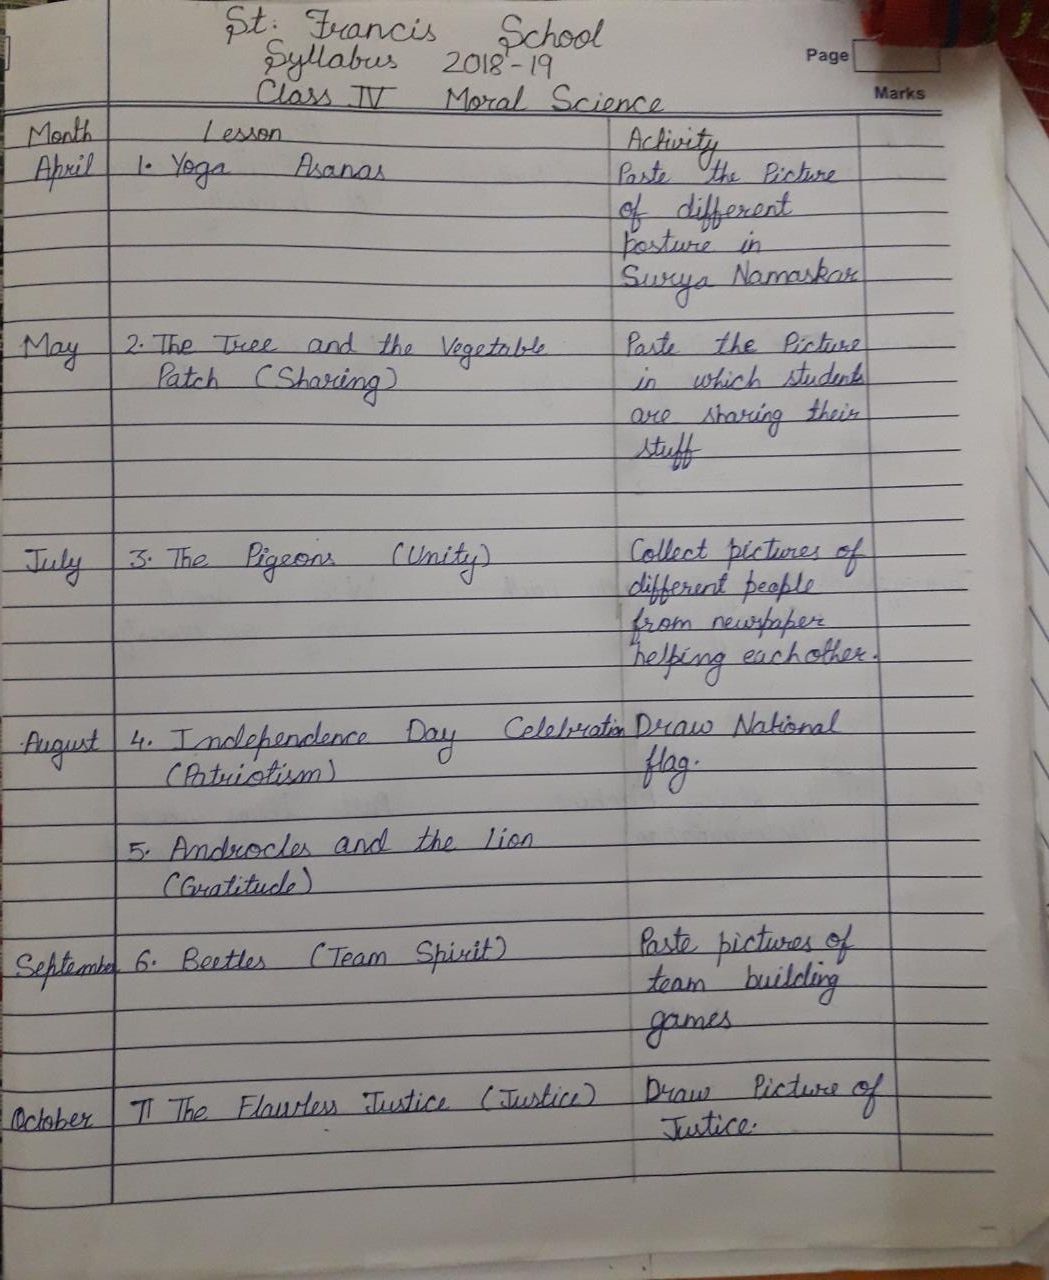 St. Francis School
Syllabus 2018-19
Page
Class IV Moral Science
Marks
Month Lesson Activity
April 1. Yoga Asanas Paste the Picture
of different
posture in
Surya Namaskar
May 2. The Tree and the Vegetable Paste the Picture
Patch (Sharing) in which students
are sharing their
stuff
July 3. The Pigeons (Unity) Collect pictures of
different people
from newspaper
helping each other.
August 4. Independence Day Celebration Draw National
(Patriotism) flag.
5. Androcles and the Lion
(Gratitude)
September 6. Beetles (Team Spirit) Paste pictures of
team building
games
October 7. The Flawless Justice (Justice) Draw Picture of
Justice.